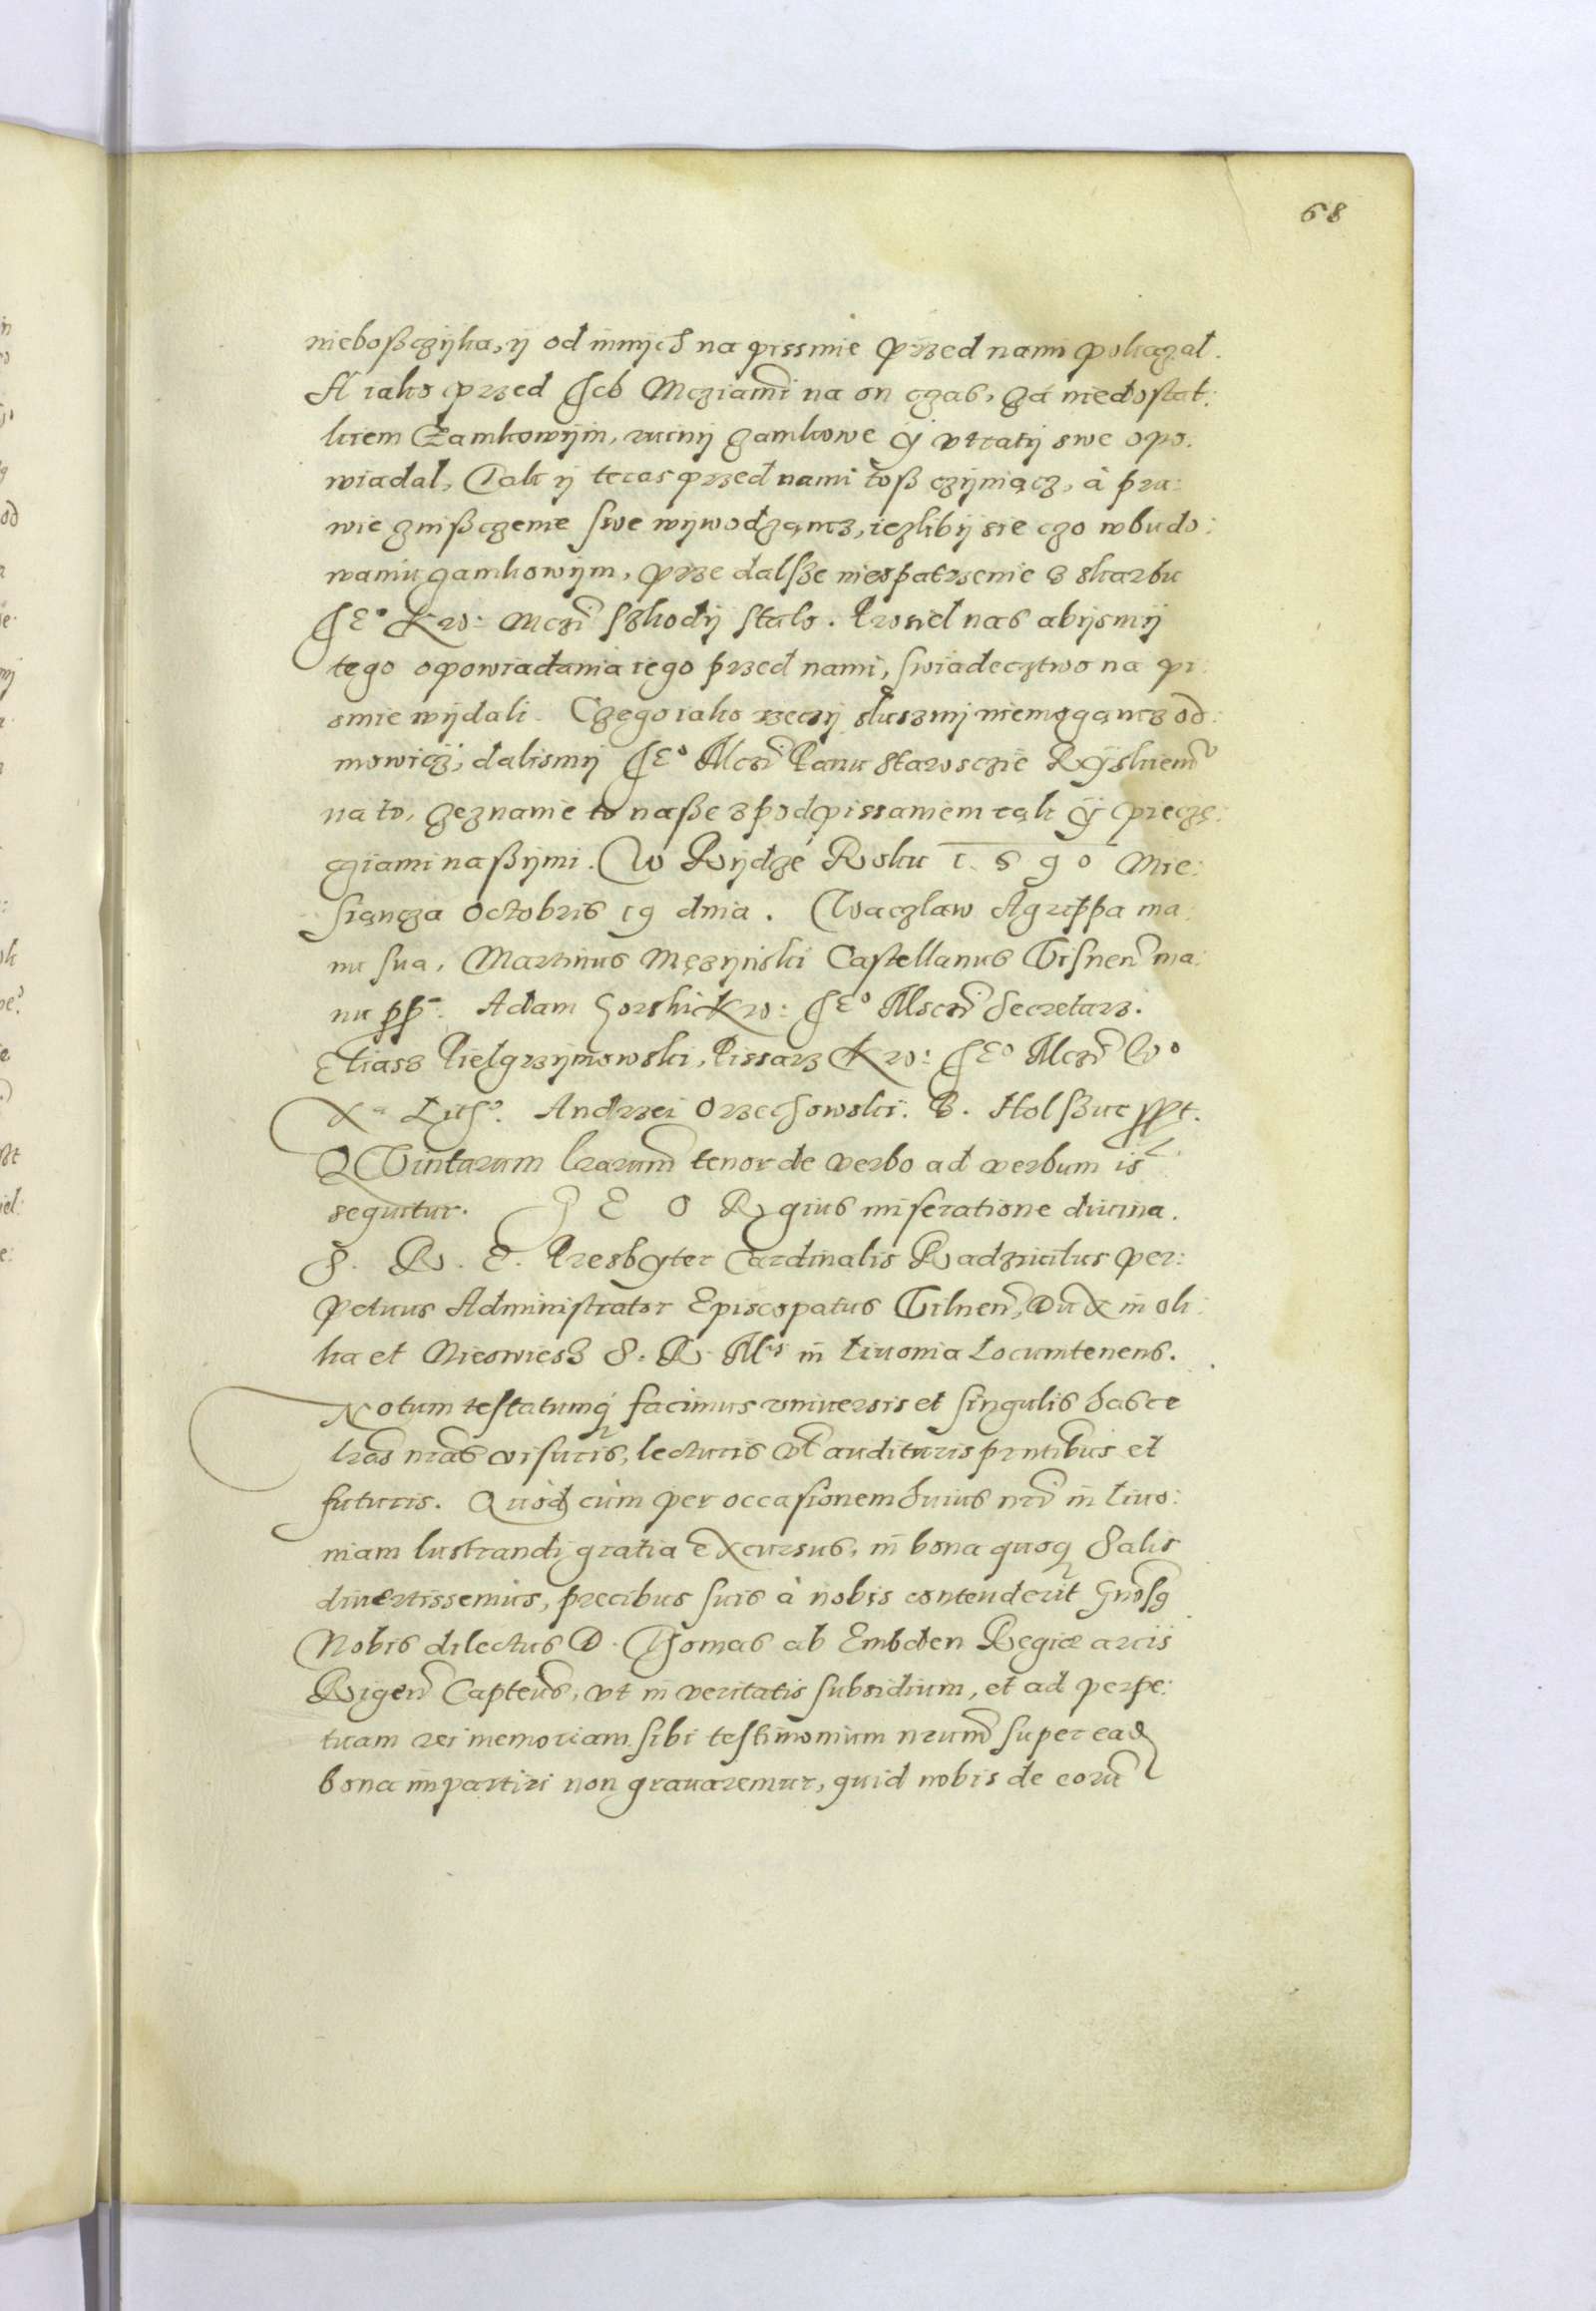 68
nieboßczyka, ÿ od innych na pissmie przed nami pokazal.
A iako przed Jch Mcziami na on czas, za niedostat:
kiem Zamkowym, ruiny zamkowe ÿ vtraty swe opo:
wiadal, Tak ÿ teras przed nami toß czyniącz, à pra:
wie znißczenie swe wywodząncz, iezliby sie czo w budo:
waniu zamkowym, prze dalsze niespatrzenie z skarbu
Je° Kro: Mczi szkody stalo. Prosiel nas abysmy
tego opowiadania iego przed nami, swiadecztwo na pi:
smie wydali. Czego iako rzeczy slusznÿ niemogąncz od:
mowicz, dalismy Je° Mczi Panu Starosczie Ryskiemu
na to, zeznanie to naße z podpissaniem tak ÿ piecze:
cziami naßymi. W Rydze Roku 1590 Mie:
siąncza Octobris 19 dnia. Waczlaw Agrippa ma:
nu sua. Martinus Męzynski Castellanus Visnen ma:
nu pp. Adam Gorski Kro: Je° Msczi Secretarz.
Eliasz Pielgrzymowski, Pissarz Kro: Je° Mczi W°
X^a Lith°. Andrzei Orzechowski. B. Holßuc ppt.
QVintarum lrarum tenor de verbo ad verbum is
sequitur. GEORgius miseratione diuina.
S. R. E. Presbyter Cardinalis Radziuilus per:
petuus Administrator Episcopatus Vilnen, Dux in Oli:
ka et Nieswiesz S. R. M^tis in Liuonia Locumtenens.
Notum testatumq facimus vniuersis et singulis hasce
lras nras visuris, lecturis vel audituris pntibus et
futuris. Quòd cùm per occasionem huius nri in Liuo:
niam lustrandi gratia excursus, in bona quoq Salis
diuertissemus, precibus suis à nobis contenderit Gnosg
Nobis dilectus D. Thomas ab Embden Regiæ arcis
Rigen Capteus, vt in veritatis subsidium, et ad perpe:
tuam rei memoriam sibi testimonium nrum super ead
bona impartiri non grauaremur, quid nobis de eoru